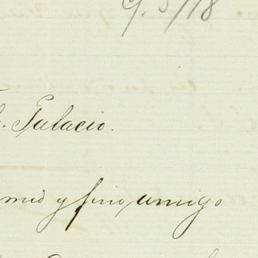 9. 3/18
. Palacio.
mio y fino amigo